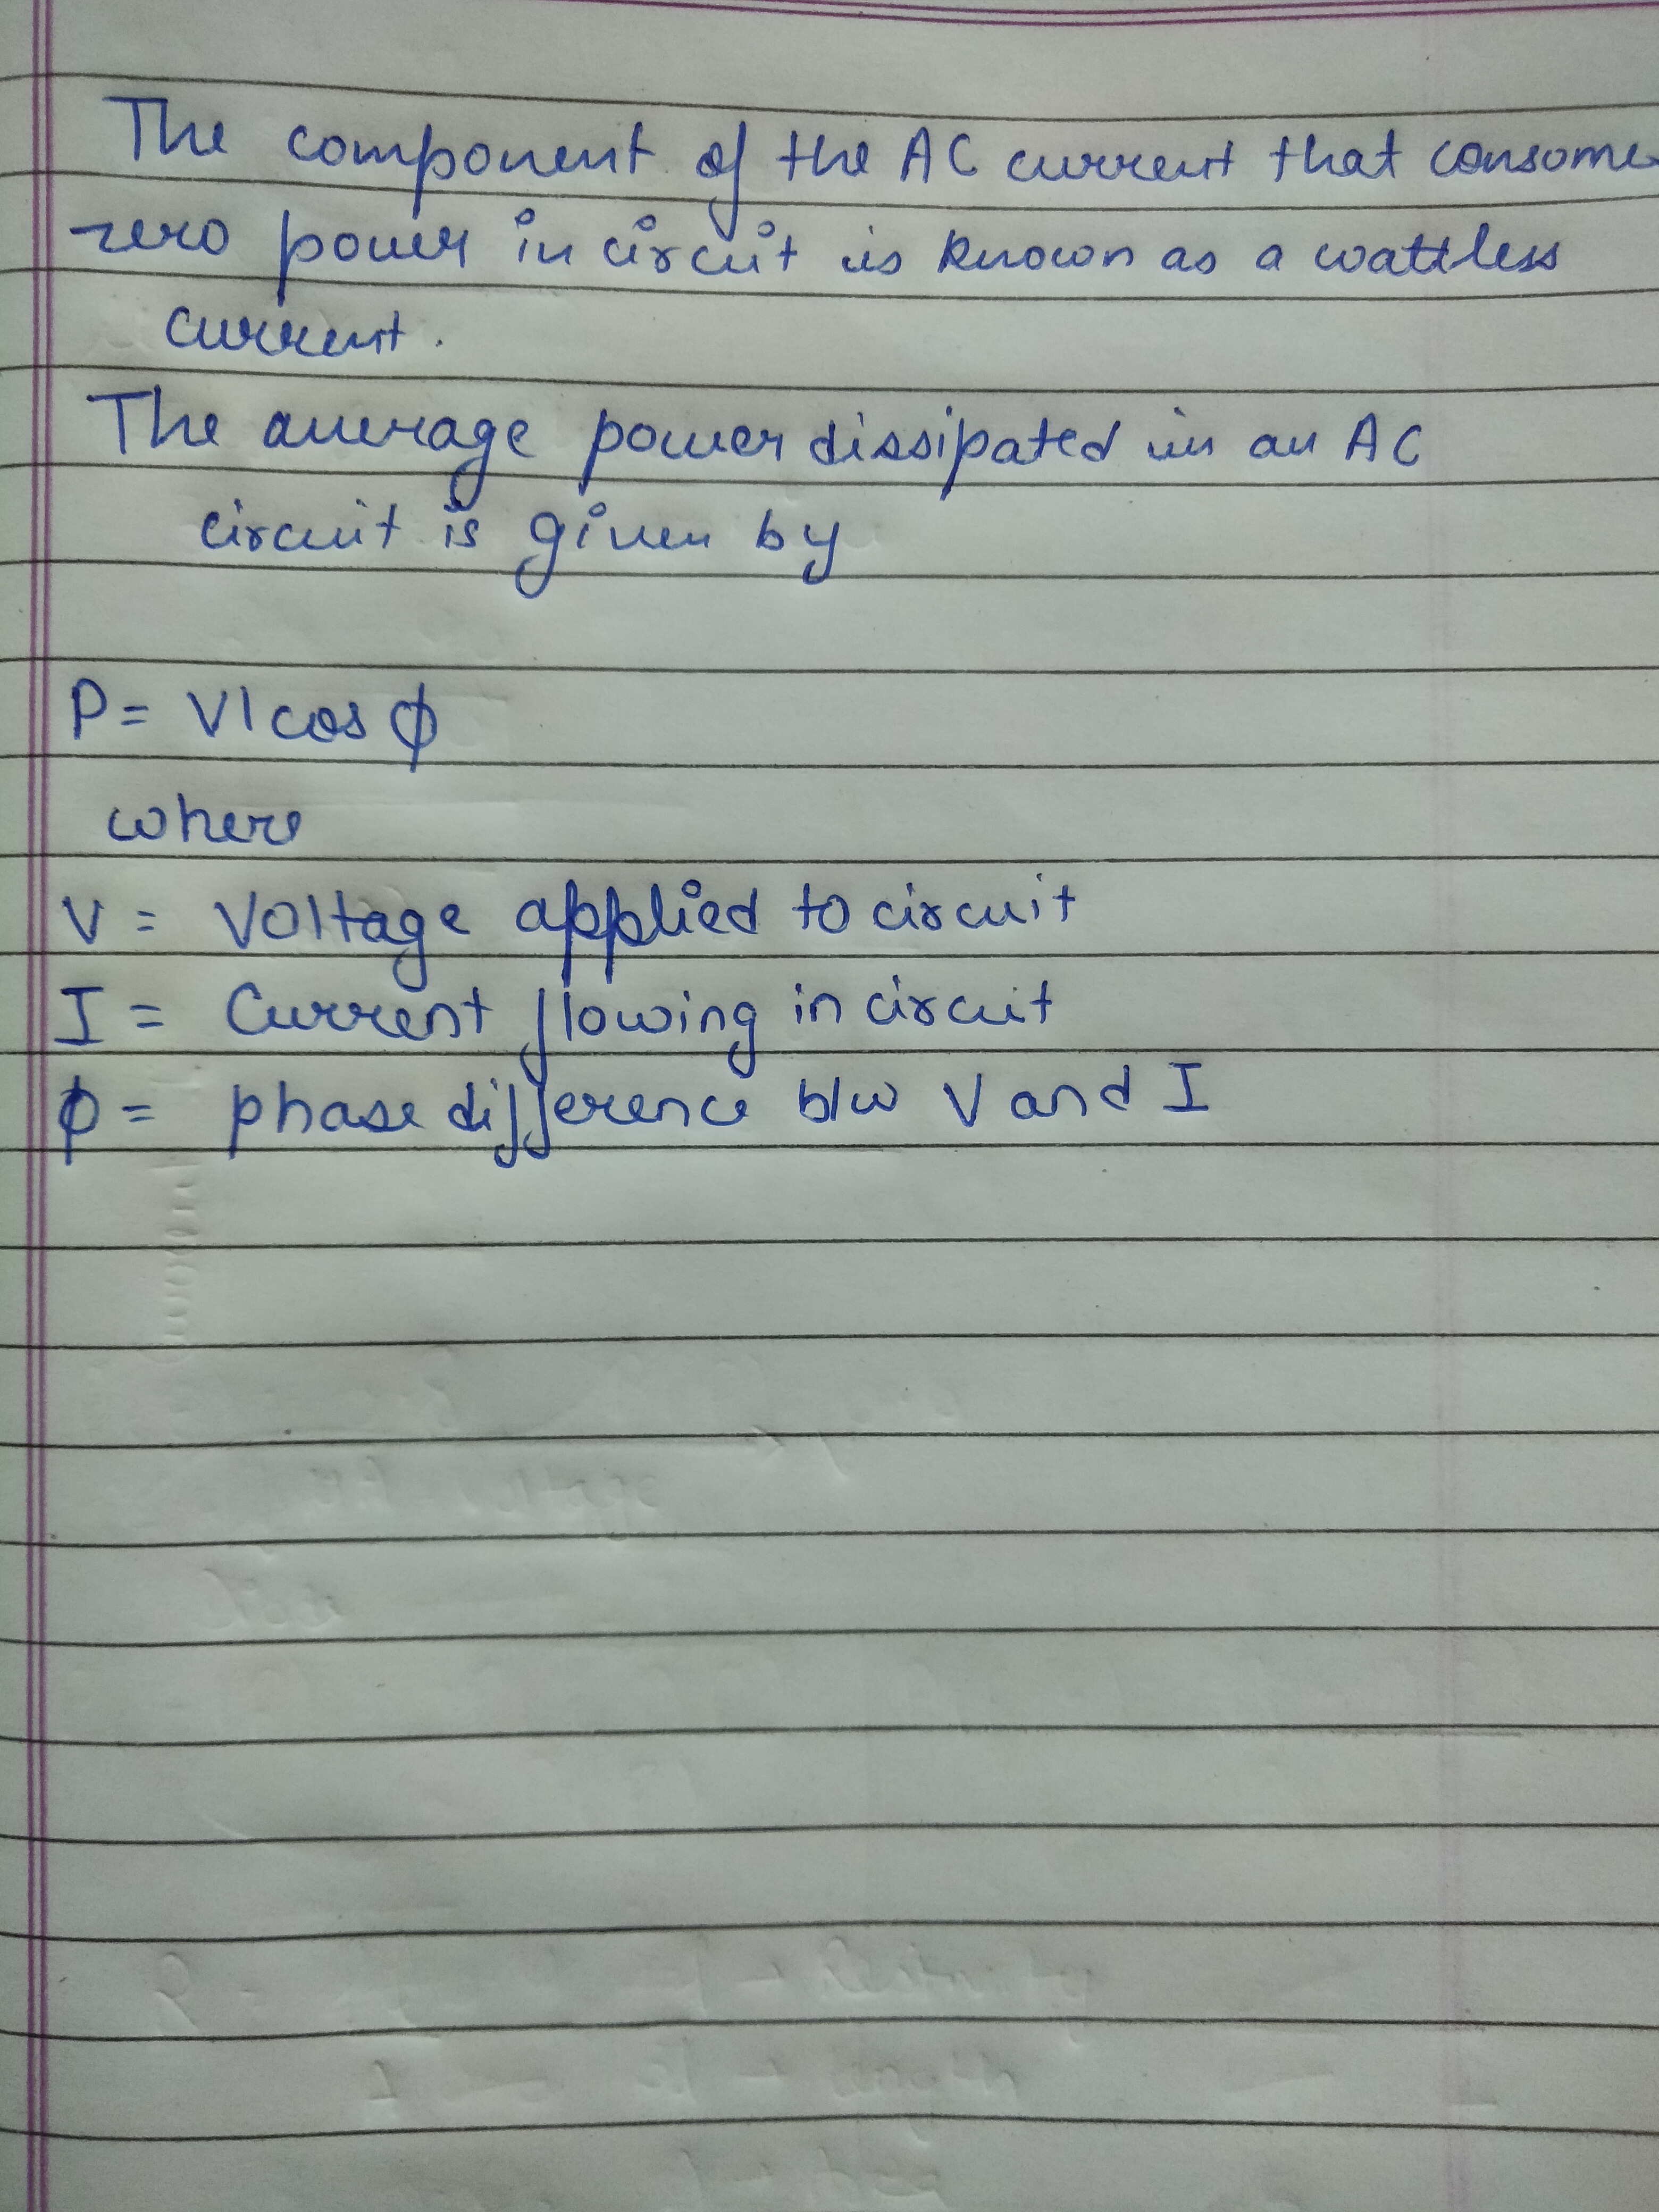 The component of the AC current that consome
zero power in circuit is known as a wattless
current.
The average power dissipated in an AC
circuit is given by
P = VI cos ϕ
where
V = Voltage applied to circuit
I = Current flowing in circuit
ϕ = phase difference b/w V and I